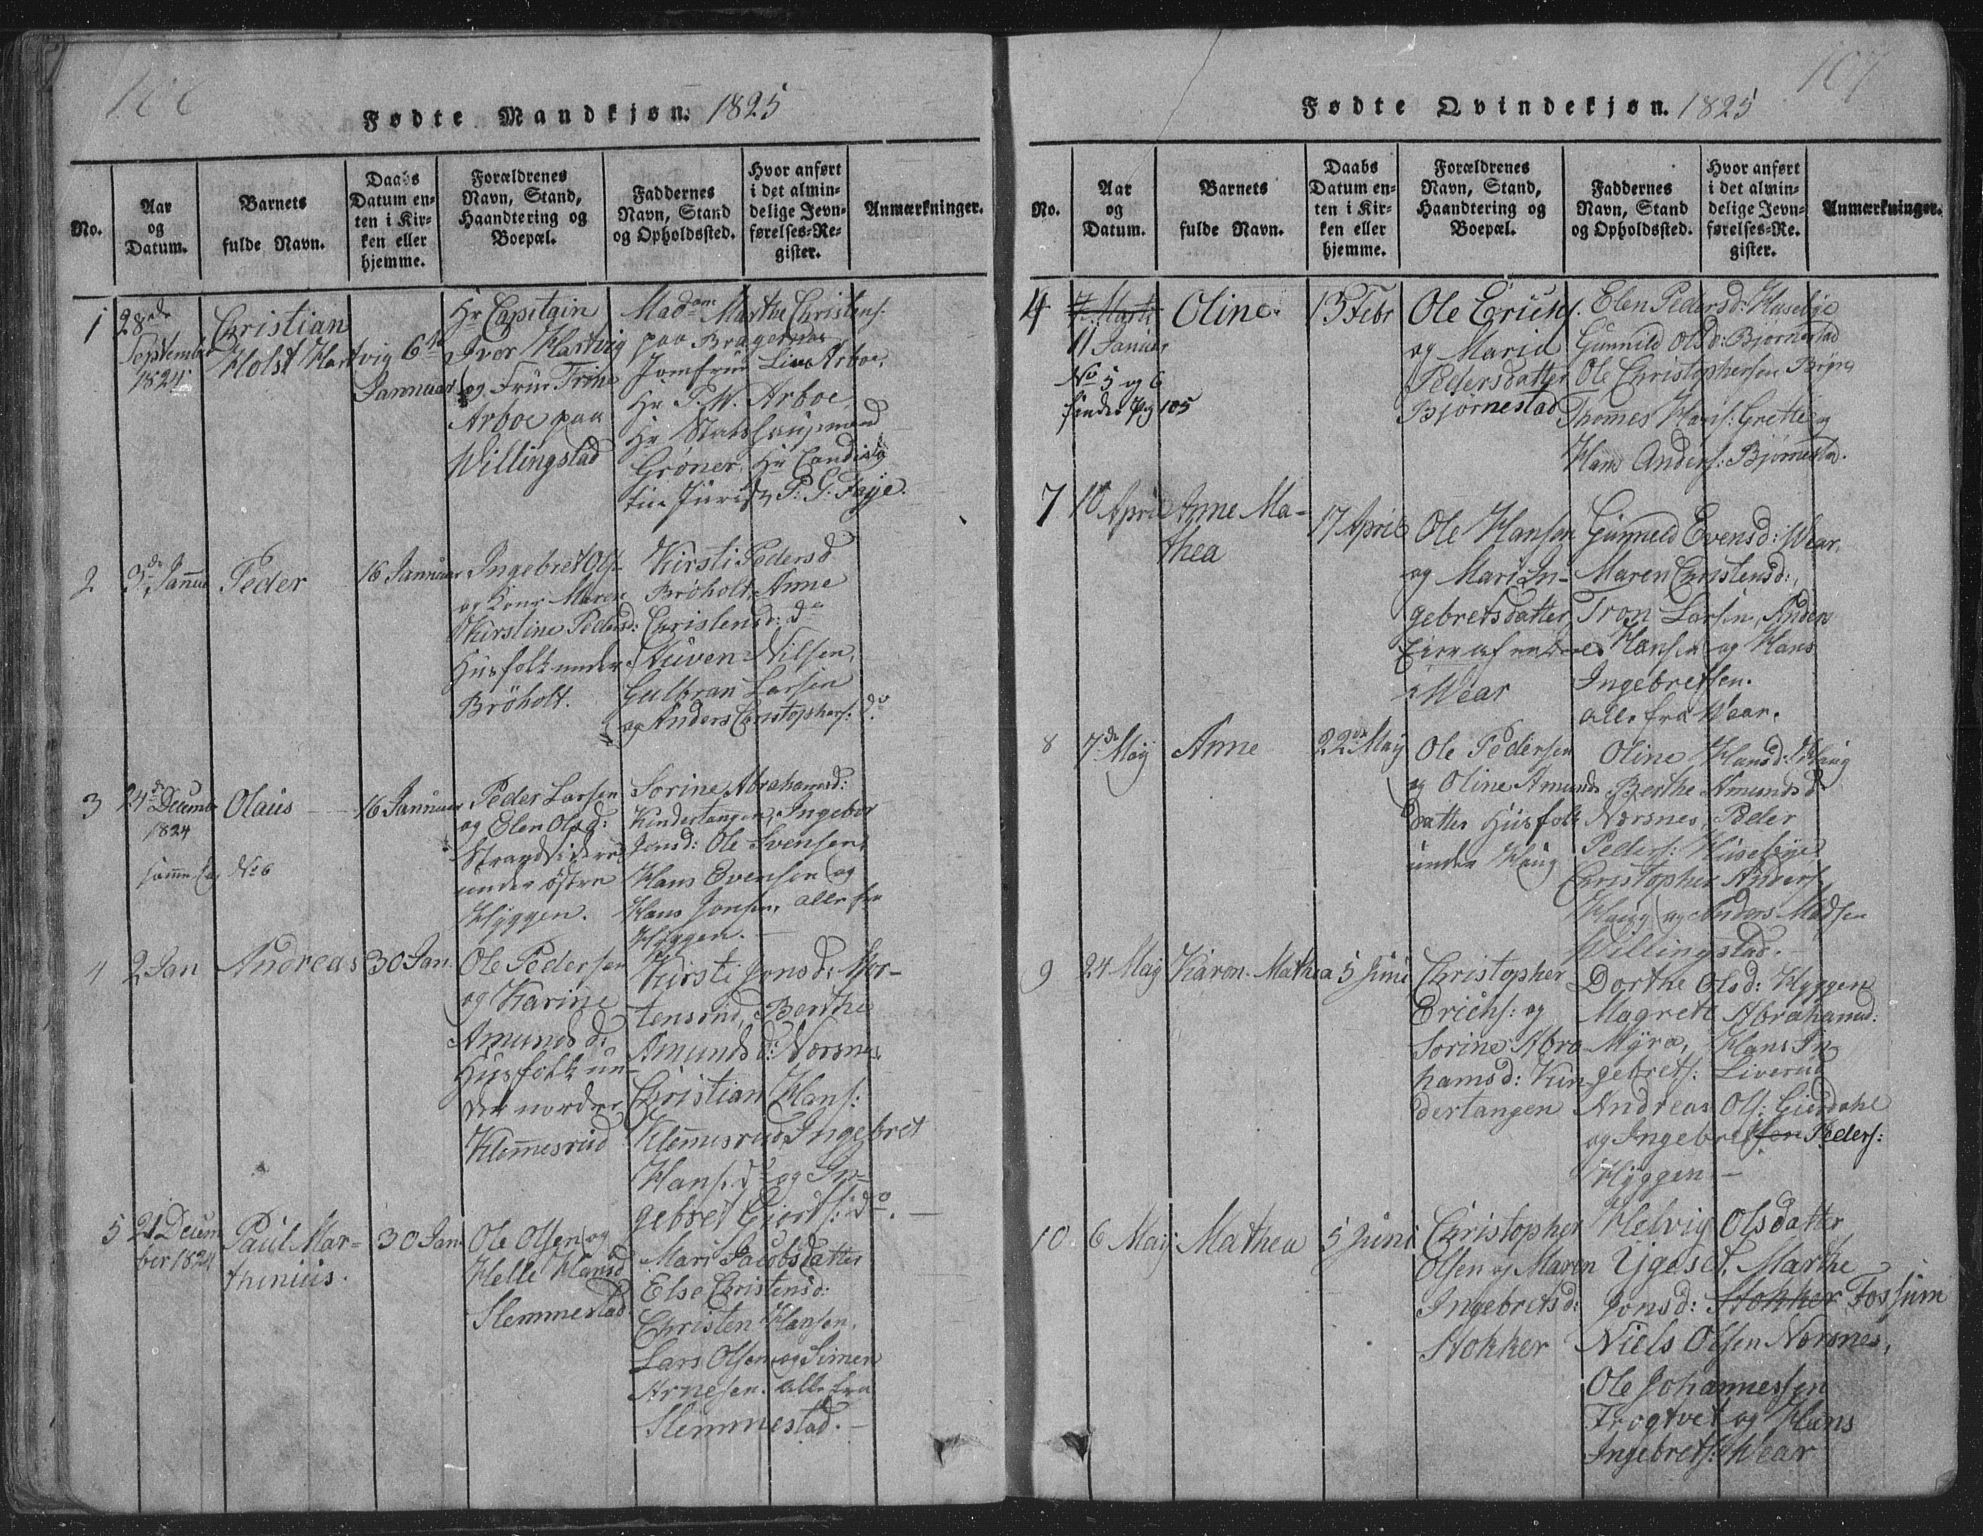 106
Fødte Mandkjøn. 1825
No.
Aar og Datum.
Barnets fulde Navn.
Daabs Datum enten i Kirken eller hjemme.
Forældrenes Navn, Stand, Haandtering og Boepæl.
Faddernes Navn, Stand og Opholdssted.
Hvor anført i det almindelige Jevnførelses-Register.
Anmærkninger.
1
28de
September
1824
Christian
Holst Hartvig
6te
Januar
Hr Capitain
Iver Hartvig
og Frue Trine
Arboe paa
Willingstad
Madame Marthe Christens:
paa Bragernæs
Jomfrue Lina Arboe,
Hr P. W. Arboe
Hr Statshaupmand
Grøner, Hr Candida
tus Juris P. T. Faye.
2
3de Janua
Peder
16 Januar
Ingebret Ols
og Kone Maren
Kirstine Pedersd:
Husfolk under
Brøholt.
Kirsti Pedersd
Brøholt, Anne
Christensd: do
Steven Nilsen,
Gulbran Larsen
og Anders Christophers: do
3
24de Decembr
1824
Olaus
16 Januar
No 6
Peder Larsen
og Elen Olsd:
Strandsiddere
under østre
Hyggen.
Sorine Abrahamsd:
Kindertangen, Ingebor
Jonsd: Ole Svensen,
Hans Evensen og
Hans Jonsen, alle fra
Hyggen.
4
2 Jan
Andreas
30 Jan.
Ole Pedersen
og Karine
Amundsd:
Husfolk un
der nordre
Klemmesrud
Kirsti Jonsd: Mor-
tensrud, Berthe
Amundsd: Nærsnes
Christian Hans:
Klemmesrud Ingebret
Hans: do og In-
gebret Giers: do.
5
21 Decem
ber 1824
Paul Mar-
thinius.
30 Jan
Ole Olsen og
Helle Hansd
Slemmestad
Mari Jacobsdatter
Else Christensd:
Christen Hansen,
Lars Olsen og Simen
Arnesen. alle fra
Slemmestad.
107
Fødte Qvindekjøn. 1825
No.
Aar og Datum.
Barnets fulde Navn.
Daabs Datum enten i Kirken eller hjemme.
Forældrenes Navn, Stand, Haandtering og Boepæl.
Faddernes Navn, Stand og Opholdssted.
Hvor anført i det almindelige Jevnførelses-Register.
Anmærkninger.
4
7 Marti
11 Januar
No 5 og 6
findes pag 105
Oline.
13 Febr
Ole Erichs.
og Maria
Pedersdatter
Bjørnestad
Elen Pedersd: Husebye
Gunnild Olsd: Bjørnestad
Ole Christophersen
Thomes Hans: Grette og
Hans Anders: Bjørnesta.
7
10 April
Anne Ma-
thea
17 April
Ole Hansen
og Mari In-
gebretsdatter
Eier af nedre
Wear
Gunnild Evensd: Wear,
Maren Christensd:,
Tron Larsen, Anden
Hansen og Hans
Ingebretsen.
alle fra Wear.
8
7de May
Anne
22de May
Ole Pedersen
og Oline Amunds
datter Husfolk
under Haug
Oline Hansd: Haug
Berthe Amundsd
Nærsnes, Peder
Peders: Husebye
Christopher Anders:
Haug og Anders Madsen
Willingstad.
9
24 May
Karen Mathea
5 Juni
Christopher
Erichs: og
Sorine Abra
hamsd: Kin
dertangen
Dorthe Olsd: Hyggen
Magrett Abrahamsd:
Myra, Hans In
gebrets: Liverud
Andreas Ols: Gierdahl
og Ingebretsen Peders:
Hyggen.
10
6 May
Mathea
5 Juni
Christopher
Olsen og Maren
Ingebretsd:
Stokker
Helvig Olsdatter
Ygeset, Marthe
Jonsd: Stokker Fossum
Niels Olsen Nærsnes,
Ole Johannessen
Trogtvet og Hans
Ingebrets: Wear